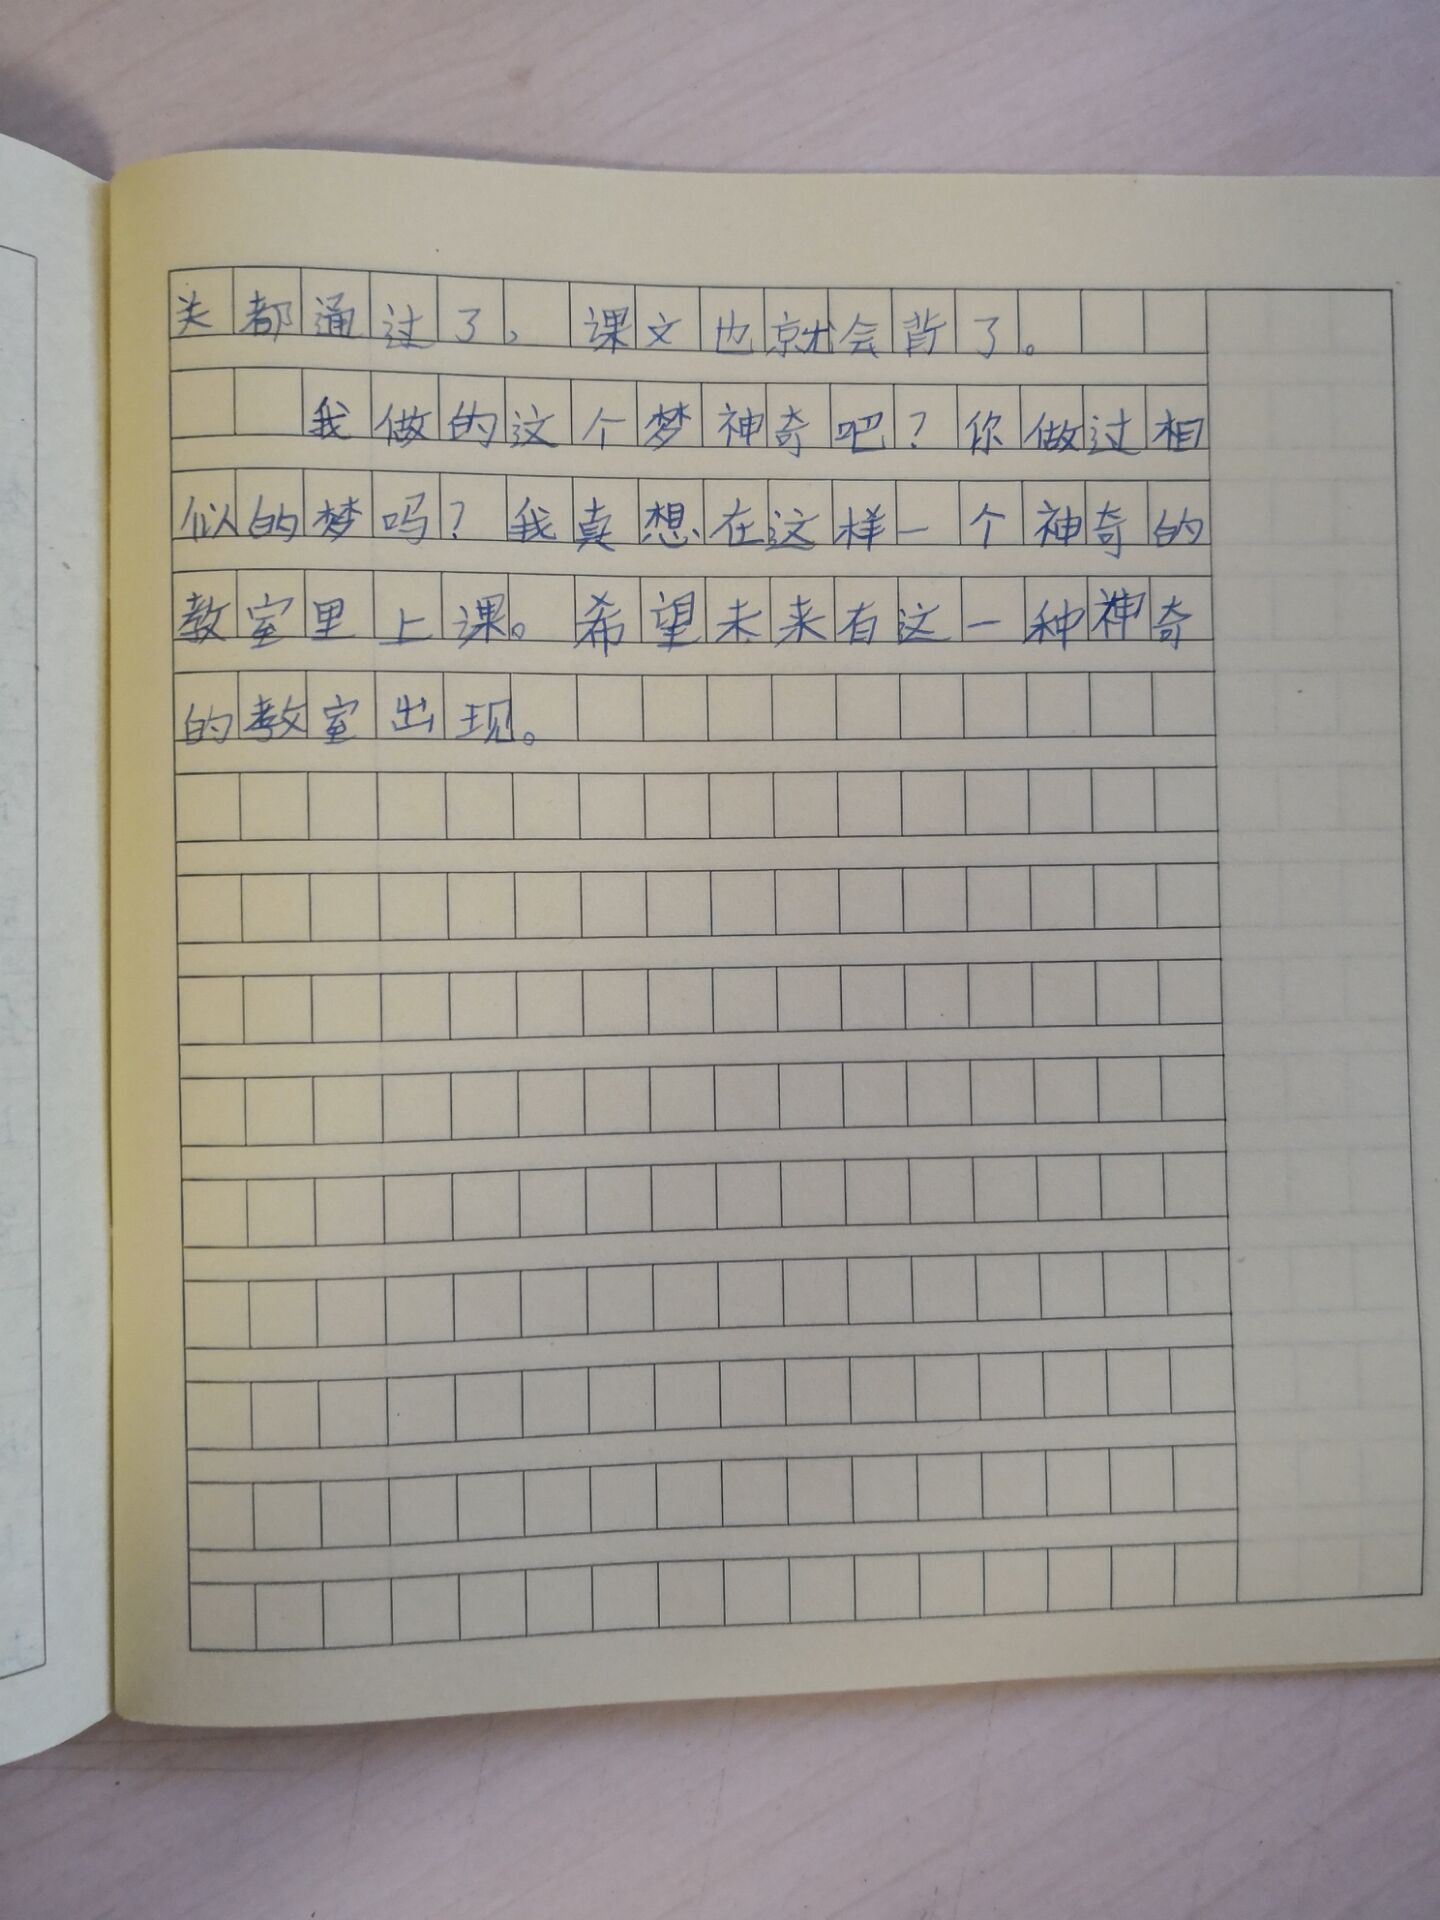 关都通过了，课文也就会背了。
我做的这个梦神奇吧？你做过相
似的梦吗？我真想在这样一个神奇的
教室里上课。希望未来有这一种神奇
的教室出现。